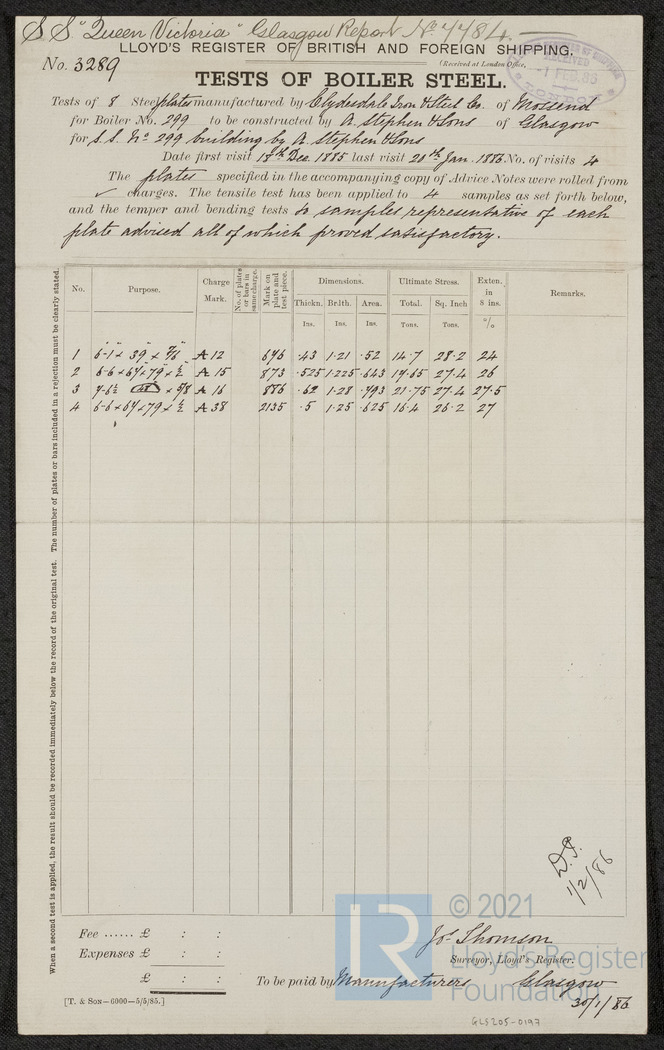 S.S. "Queen Victoria" Glasgow Report No. 4484.
LLOYD'S REGISTER OF BRITISH AND FOREIGN SHIPPING.
No. 3289
(Received at London Office,
RECEIVED
1 FEB. 86
TESTS OF BOILER STEEL.
Tests of 8 Steel plates manufactured by Clydesdale Iron & Steel Co. of Mossend
for Boiler No. 299 to be constructed by A. Stephen & Sons of Glasgow
for S.S. No 299 building by A. Stephen & Sons
Date first visit 18th Dec. 1885 last visit 28th Jan. 1886. No. of visits 4
The plates specified in the accompanying copy of Advice Notes were rolled from
✓ charges. The tensile test has been applied to 4 samples as set forth below,
and the temper and bending tests to samples representative of each
plate advised all of which proved satisfactory.
When a second test is applied, the result should be recorded immediately below the record of the original test. The number of plates or bars included in a rejection must be clearly stated.
No. Purpose. Charge Mark. No. of plates or bars in same charge. Mark on plate and test piece. Dimensions. Ultimate Stress. Exten. in 8 ins. Remarks.
Thickn. Brlth. Area. Total. Sq. Inch
Ins. Ins. Ins. Tons. Tons. %
1 6-1 × 39 × 7/16 A 12 646 .43 1.21 .52 14.7 28.2 24
2 6-6 × 64 × 79 × 1/2 A 15 873 .525 1.225 .643 17.65 27.4 26
3 7-6½ × 5/8 A 16 886 .62 1.28 .793 21.75 27.4 27.5
4 6-6 × 64 × 79 × 1/2 A 38 2135 .5 1.25 .625 16.4 26.2 27
D.P.
1/2/86
Fee ...... £ : :
Expenses £ : :
£ : :
© 2021
Lloyd's Register
Foundation
LR
Jos Thomson
Surveyor, Lloyd's Register.
To be paid by Manufacturers Glasgow
30/1/86
[T. & Son—6000—5/5/85.]
GLS205-0197